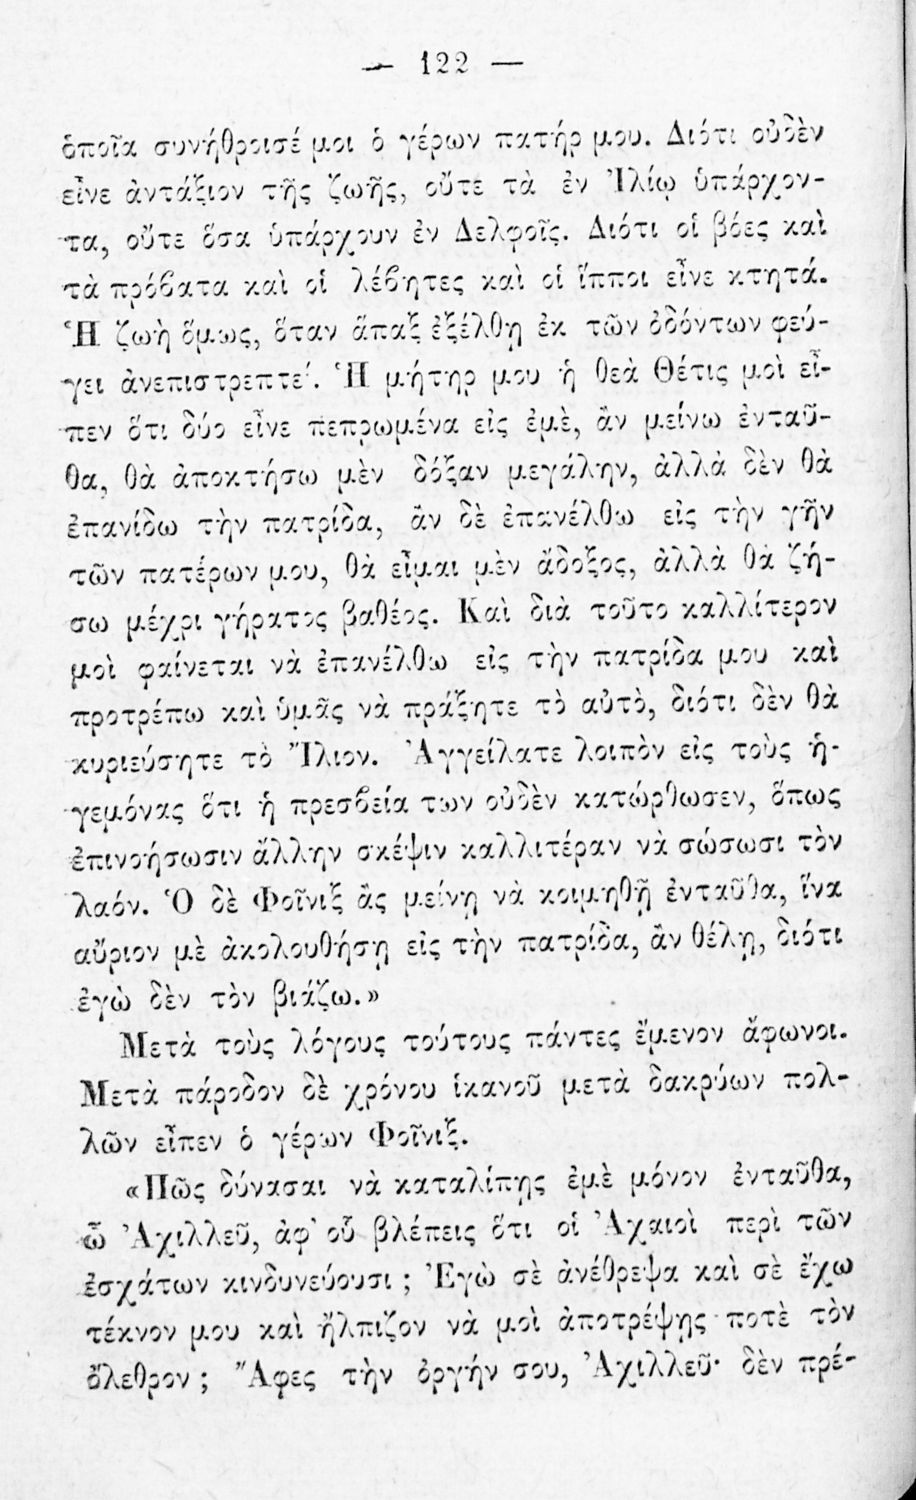 — 122 —
ὁποῖα συνήθροισέ μοι ὁ γέρων πατήρ μου. Διότι οὐδὲν
εἶνε ἀντάξιον τῆς ζωῆς, οὔτε τὰ ἐν Ἰλίῳ ὑπάρχον-
τα, οὔτε ὅσα ὑπάρχουν ἐν Δελφοῖς. Διότι οἱ βόες καὶ
τὰ πρόβατα καὶ οἱ λέβητες καὶ οἱ ἵπποι εἶνε κτητά.
Ἡ ζωὴ ὅμως, ὅταν ἅπαξ ἐξέλθῃ ἐκ τῶν ὀδόντων φεύ-
γει ἀνεπιστρεπτεί. Ἡ μήτηρ μου ἡ θεὰ Θέτις μοὶ εἶ-
πεν ὅτι δύο εἶνε πεπρωμένα εἰς ἐμὲ, ἂν μείνω ἐνταῦ-
θα, θὰ ἀποκτήσω μὲν δόξαν μεγάλην, ἀλλὰ δὲν θὰ
ἐπανίδω τὴν πατρίδα, ἂν δὲ ἐπανέλθω εἰς τὴν γῆν
τῶν πατέρων μου, θὰ εἶμαι μὲν ἄδοξος, ἀλλὰ θὰ ζή-
σω μέχρι γήρατος βαθέος. Καὶ διὰ τοῦτο καλλίτερον
μοὶ φαίνεται νὰ ἐπανέλθω εἰς τὴν πατρίδα μου καὶ
προτρέπω καὶ ὑμᾶς νὰ πράξητε τὸ αὐτὸ, διότι δὲν θὰ
κυριεύσητε τὸ Ἴλιον. Ἀγγείλατε λοιπὸν εἰς τοὺς ἡ-
γεμόνας ὅτι ἡ πρεσβεία των οὐδὲν κατώρθωσεν, ὅπως
ἐπινοήσωσιν ἄλλην σκέψιν καλλιτέραν νὰ σώσωσι τὸν
λαόν. Ὁ δὲ Φοῖνιξ ἂς μείνῃ νὰ κοιμηθῇ ἐνταῦθα, ἵνα
αὔριον μὲ ἀκολουθήσῃ εἰς τὴν πατρίδα, ἂν θέλῃ, διότι
ἐγὼ δὲν τὸν βιάζω.»
Μετὰ τοὺς λόγους τούτους πάντες ἔμενον ἄφωνοι.
Μετὰ πάροδον δὲ χρόνου ἱκανοῦ μετὰ δακρύων πολ-
λῶν εἶπεν ὁ γέρων Φοῖνιξ.
«Πῶς δύνασαι νὰ καταλίπῃς ἐμὲ μόνον ἐνταῦθα,
ὦ Ἀχιλλεῦ, ἀφ' οὗ βλέπεις ὅτι οἱ Ἀχαιοὶ περὶ τῶν
ἐσχάτων κινδυνεύουσι ; Ἐγὼ σὲ ἀνέθρεψα καὶ σὲ ἔχω
τέκνον μου καὶ ἤλπιζον νὰ μοὶ ἀποτρέψῃς ποτὲ τὸν
ὄλεθρον ; Ἄφες τὴν ὀργήν σου, Ἀχιλλεῦ· δὲν πρέ-